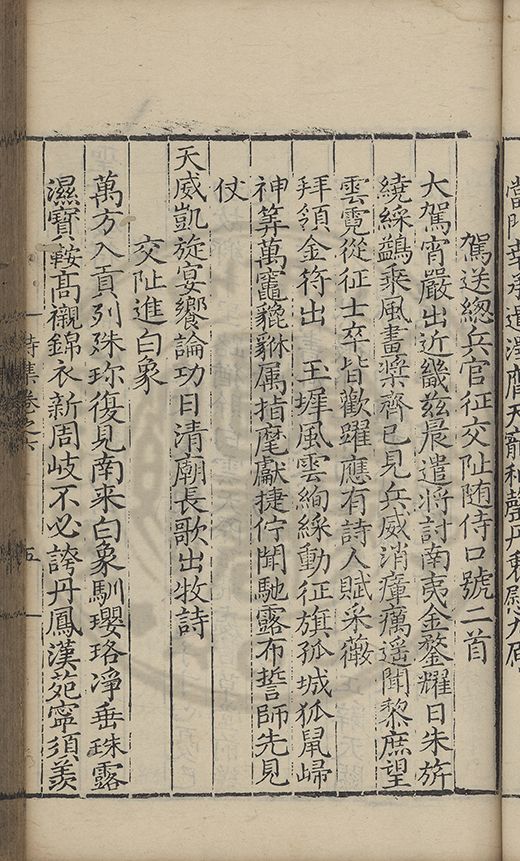 駕送緫兵官征交阯随侍口號二首
大駕宵嚴出近畿兹晨遣將討南夷金鍪耀日朱旂
繞綵鷁乘風畫槳齊已見兵威消瘴癘遥聞黎庶望
雲霓從征士卒皆歡躍應有詩人賦采薇
拜領金符出 玉墀風雲絢綵動征旗孤城狐鼠㱕
神筭萬竈貔貅属指麾獻捷佇聞馳露布誓師先見
仗
天威凱旋宴饗論功日清廟長歌出牧詩
交阯進白象
萬方入貢列殊珎復見南来白象馴瓔珞淨垂珠露
濕寳鞍髙襯錦衣新周岐不必誇丹鳳漢苑寧須羡
詩集卷之六 五